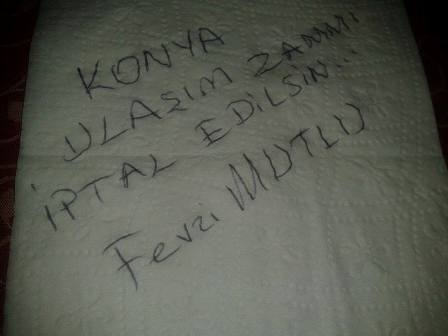 KONYA
ULAŞIM ZAMMI
İPTAL EDİLSİN...
Fevzi MUTLU